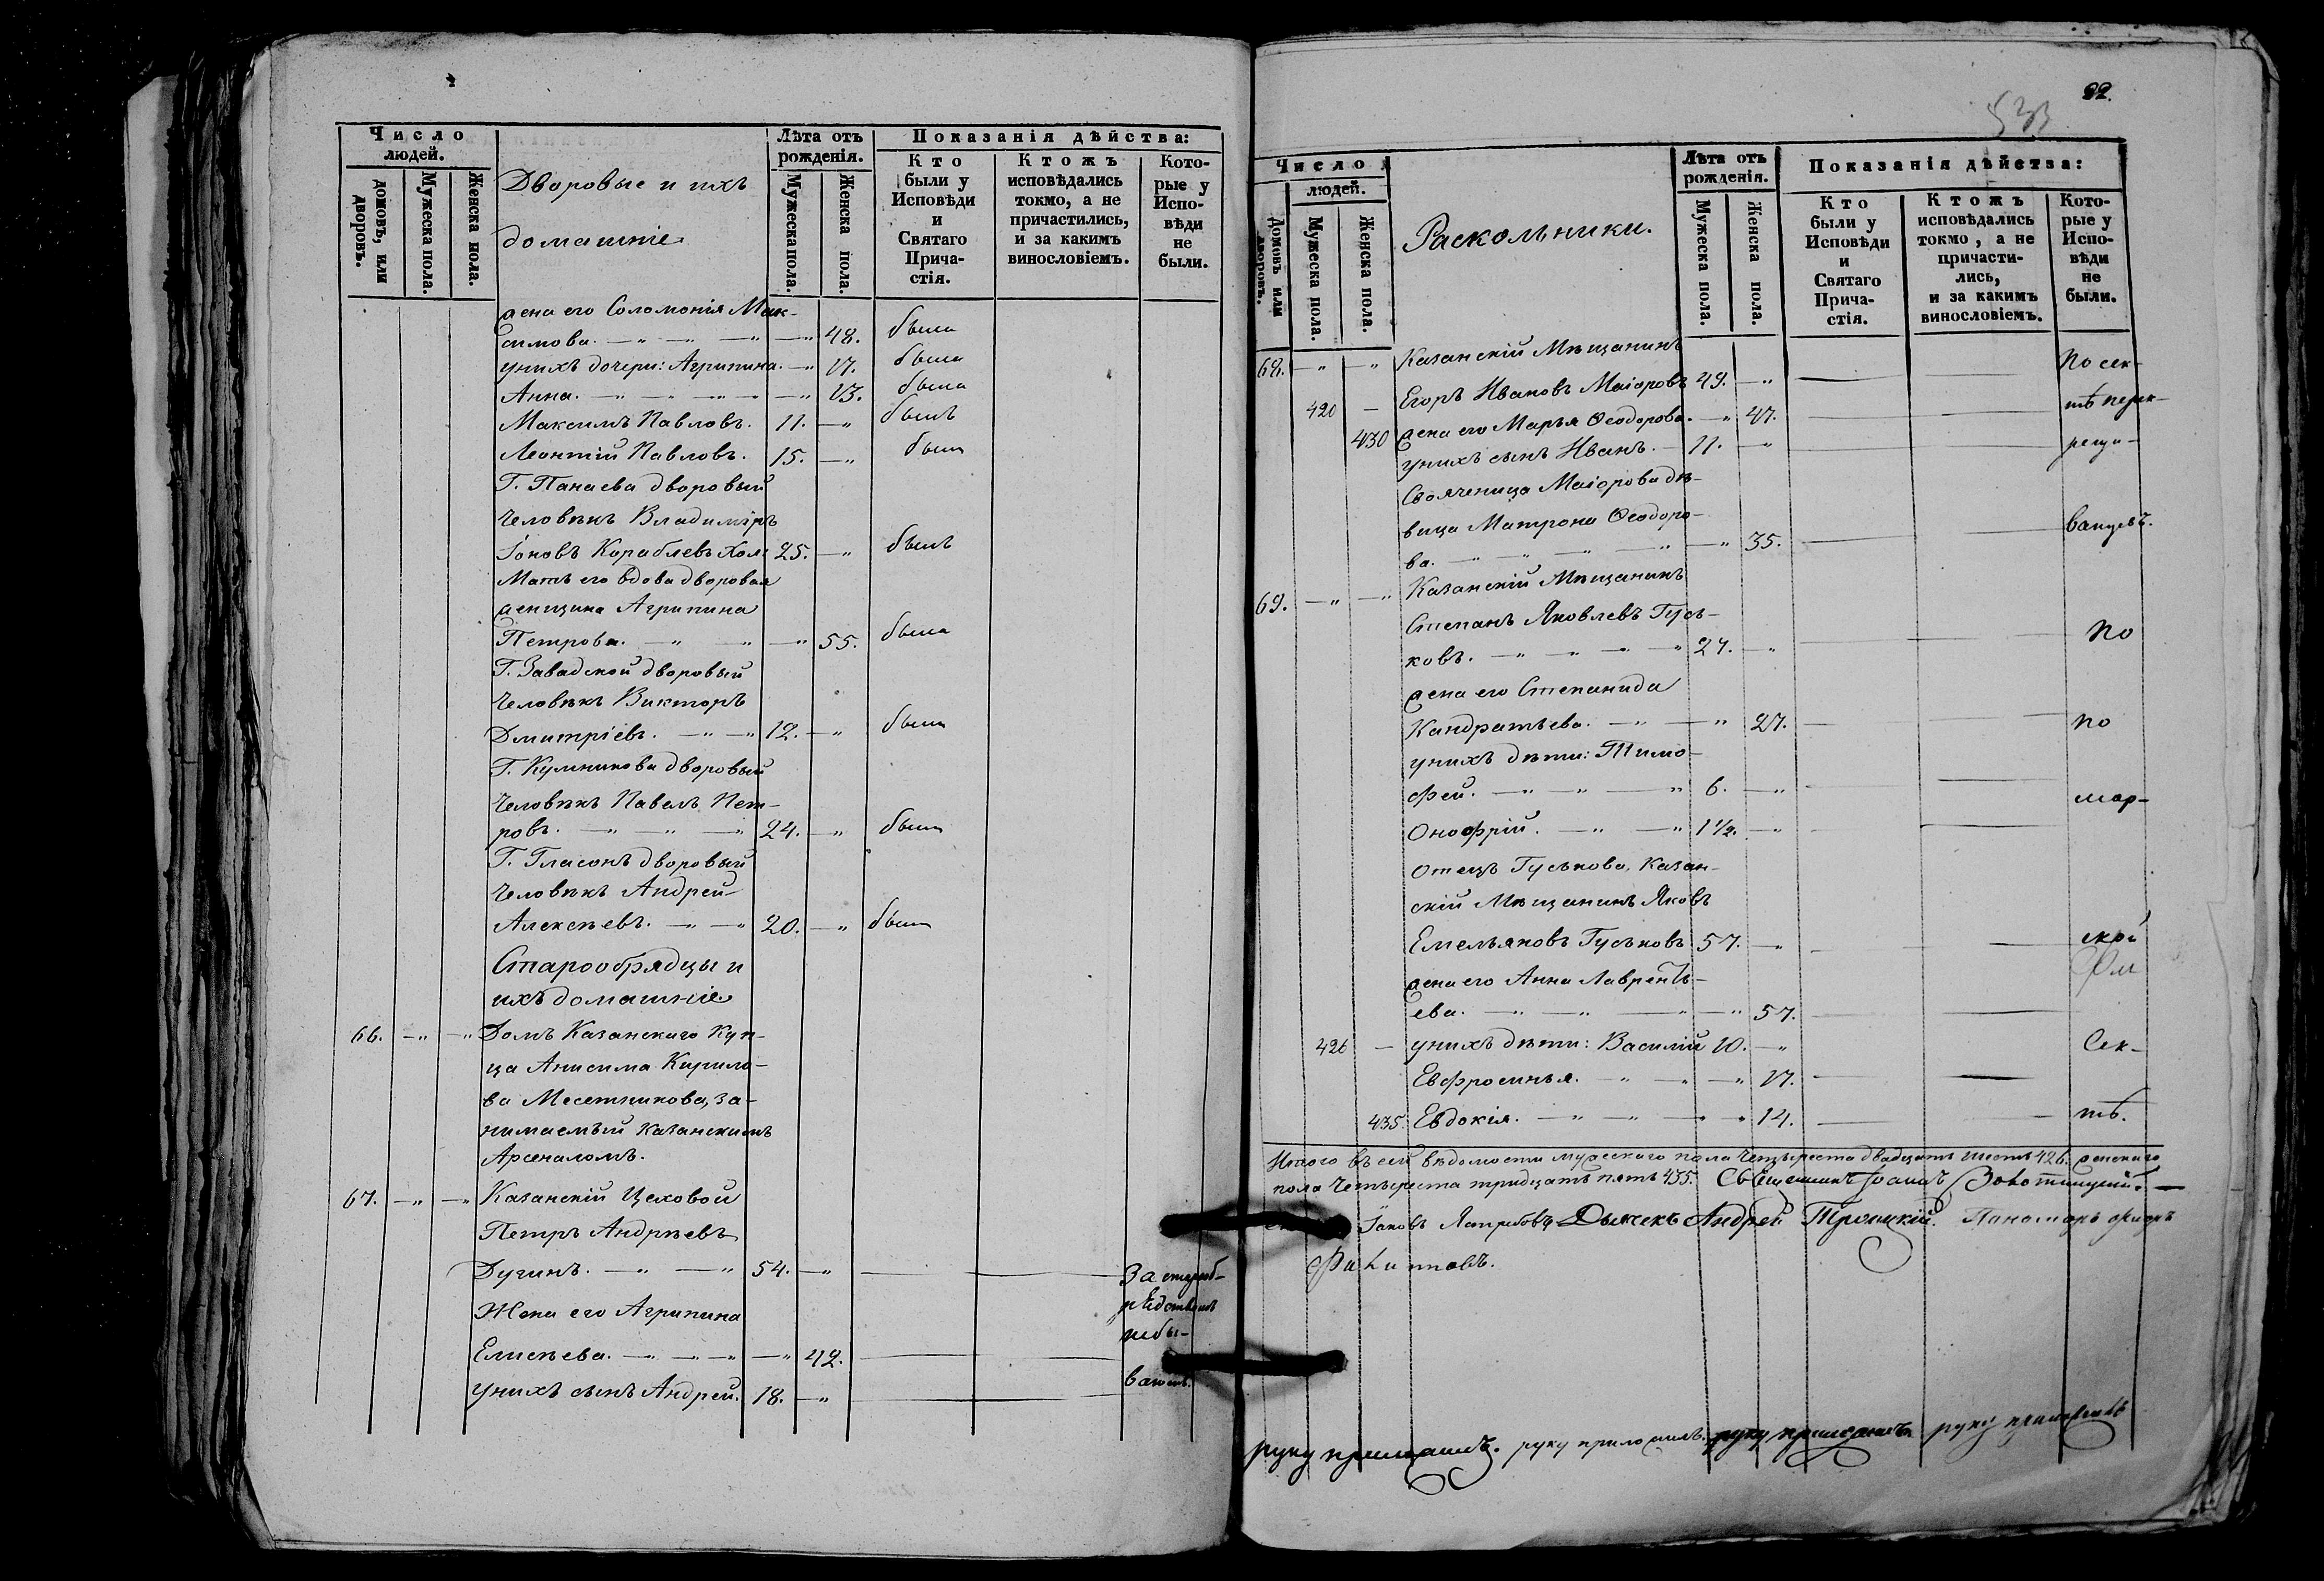 Число людей.
домовъ, или дворовъ.
Мужеска пола.
Женска пола.
Дворовые и ихъ
домашніе
Лѣта отъ рожденія.
Мужеска пола.
Женска пола.
Показанія дѣйства:
Кто были у Исповѣди и Святаго Прича-стія.
Ктожъ исповѣдались токмо, а не причастились, и за какимъ винословіемъ.
Кото-рые у Испо-вѣди не были.
жена его Соломонія Мак-
симова. — „ — „ — „ 48. была
у нихъ дочери: Агрипина. — „ 17. была
Анна. — „ — „ — „ 13. была
Максимъ Павловъ. 11. — „ былъ
Леонтій Павловъ. 15. — „ былъ
Г. Панаева дворовый
человѣкъ Владиміръ
Іоновъ Кораблевъ хол: 25. — „ былъ
Мать его вдова дворовая
женщина Агрипина
Петрова. — „ — „ 55. была
Г. Завадской дворовый
человѣкъ Викторъ
Дмитріевъ. — „ — „ 12. — „ былъ
Г. Кумникова дворовый
человѣкъ Павелъ Пет-
ровъ. — „ — „ 24. — „ былъ
Г. Гласонъ дворовый
человѣкъ Андрей
Алексѣевъ. — „ — „ 20. — „ былъ
Старообрядцы и
ихъ домашніе
66. — „ — „ Домъ Казанскаго Куп-
ца Анисима Кирило-
ва Месетникова, за-
нимаемый Казанскимъ
Арсеналомъ.
67. — „ — „ Казанскій Цеховой
Петръ Андрѣевъ
Дугинъ. — „ — „ 54. — „ За староб-
рядствомъ
небы-
Жена его Агрипина
Елисѣева. — „ — „ — „ 42.
ваютъ.
у нихъ сынъ Андрей. 18. — „
22.
533
Число людей.
Домовъ или дворовъ.
Мужеска пола.
Женска пола.
Раскольники.
Лѣта отъ рожденія.
Мужеска пола.
Женска пола.
Показанія дѣйства:
Кто были у Исповѣди и Святаго Прича-стія.
Ктожъ исповѣдались токмо, а не причасти-лись, и за какимъ винословіемъ.
Кото-рые у Испо-вѣди не были.
68. — „ — „ Казанскій Мѣщанинъ
Егоръ Ивановъ Маіоровъ 49. — „ По сек-
420 — жена его Марья Ѳеодорова. — „ 47. тѣ перек-
430 у нихъ сынъ Иванъ. — 11. — „ рещи-
Своячeница Маіорова дѣ-
вица Матрона Ѳеодоро-
ва. — „ — „ — „ 35. ванцевъ.
69. — „ — „ Казанскій Мѣщанинъ
Степанъ Яковлевъ Гусь-
ковъ. — „ — „ — „ 27. — „ По
жена его Степанида
Кандратьева. — „ — „ 27. по
у нихъ дѣти: Тимо-
фей. — „ — „ — „ 6. — „ мор-
Онофрій. — „ — „ 1 1/2. — „
отецъ Гуськова, Казан-
скій Мѣщанинъ Яковъ
Емельяновъ Гуськовъ 57. — „ ской
жена его Анна Лаврентъ-
ева. — „ — „ — „ 57.
426 — у нихъ дѣти: Василій 10. — „ Сек-
Евфросинья. — „ — „ — „ 17.
435. Евдокія. — „ — „ — „ 14. тѣ.
Итого въ сей вѣдомости мужескаго пола четыреста двадцать шесть 426. женскаго
пола четыреста тридцать пять 435. Священникъ Іоаннъ
Іаковъ Дьячекъ Андрей Троицкій. Пономарь
Филипповъ.
руку приложилъ. руку приложилъ. руку приложилъ руку приложилъ